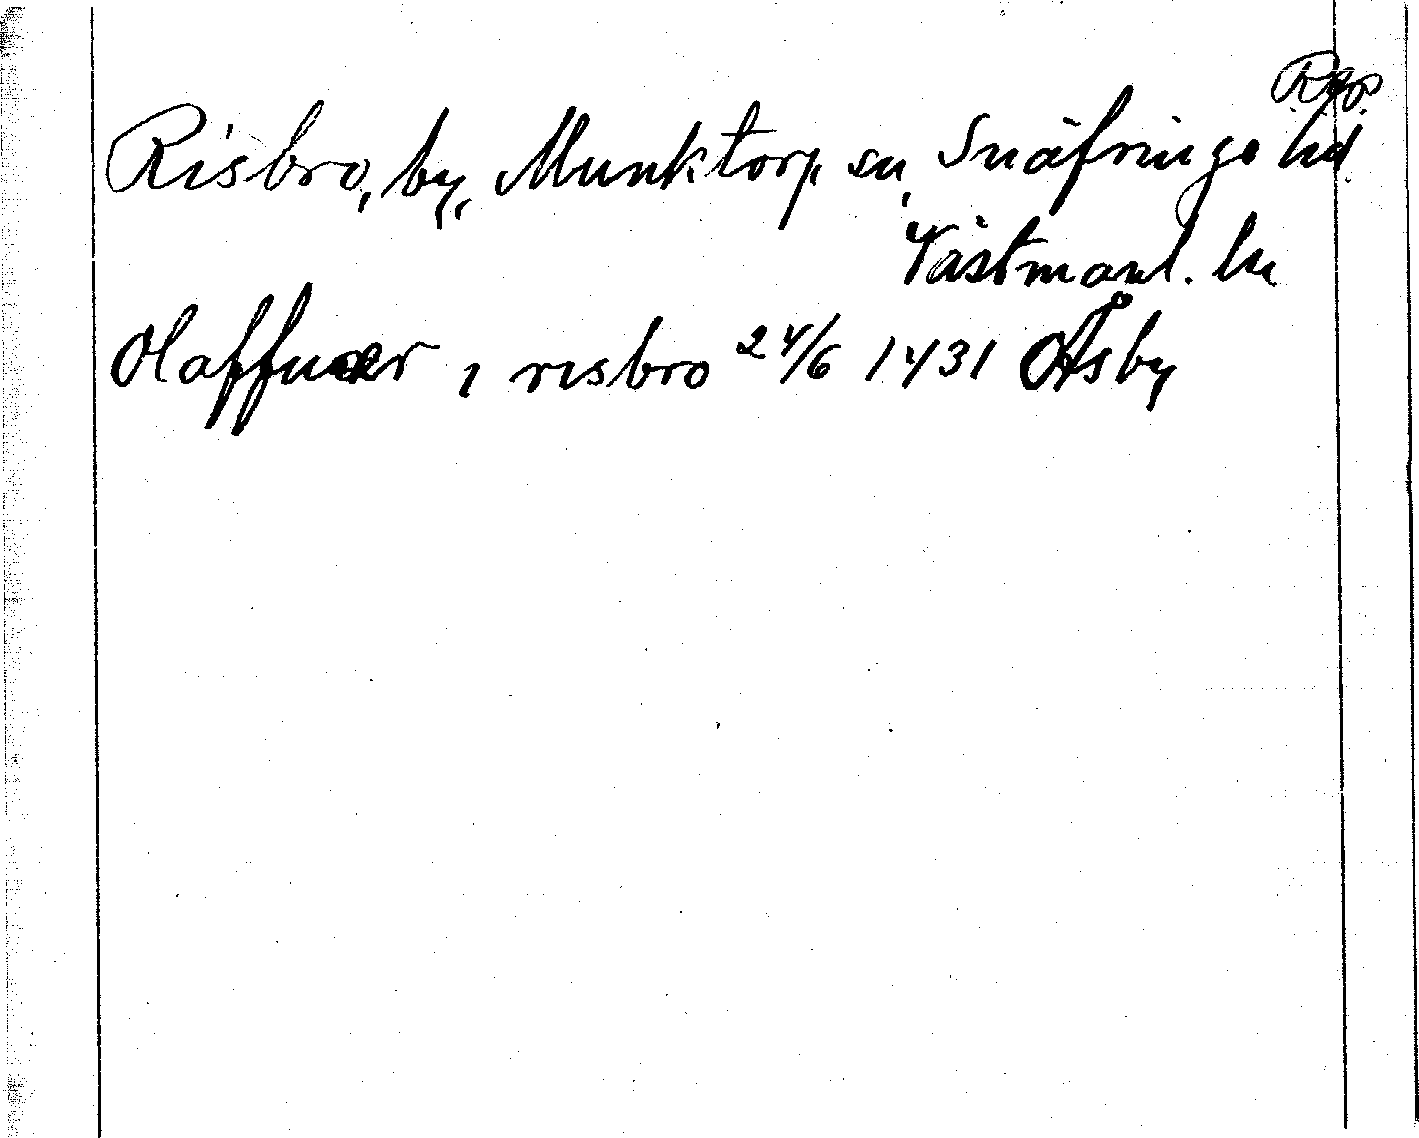 Rgp.
Risbro, by, Munktorp sn, Snäfringe hd
Västmanl. ln
Olaffwer i risbro 24/6 1431 Åsby